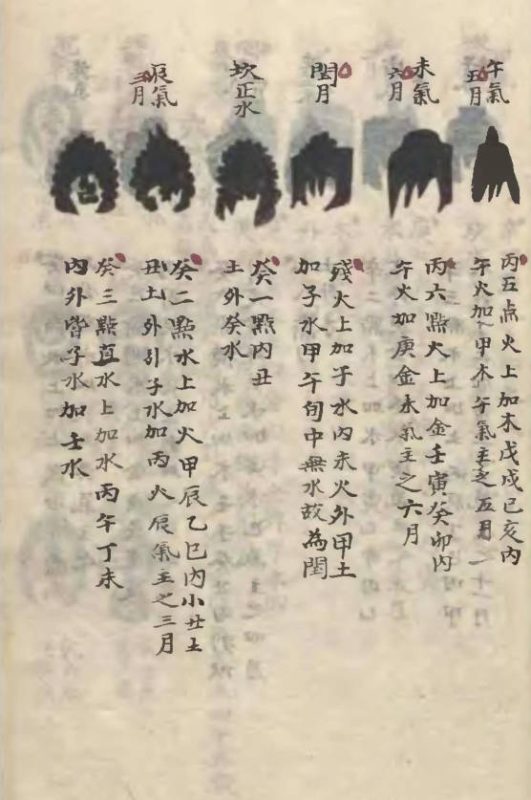 午氣
五月
未氣
六月
閏月
坎正水
辰氣
三月
丙五点火上加木戊戌己亥内
午火加甲木午氣主之五月
丙六點火上加金壬寅癸卯丙
午火加庚金未氣主之六月
殘火上加子水内未火外甲土
加子水甲午旬中無水故為閏
癸一點内丑
土外癸水
癸二點水上加火甲辰乙巳内小丑土
丑土外引子水加丙火辰氣主之三月
癸三點直水上加水丙午丁未
内外皆子水加壬水